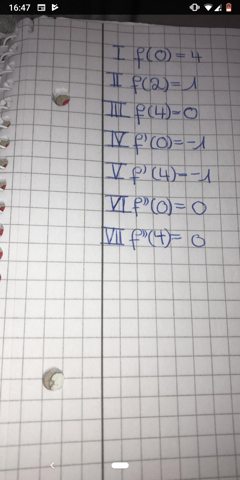 16:47
I f(0)=4
II f(2)=1
III f(4)=0
IV f'(0)=-1
V f'(4)=-1
VI f''(0)=0
VII f''(4)=0